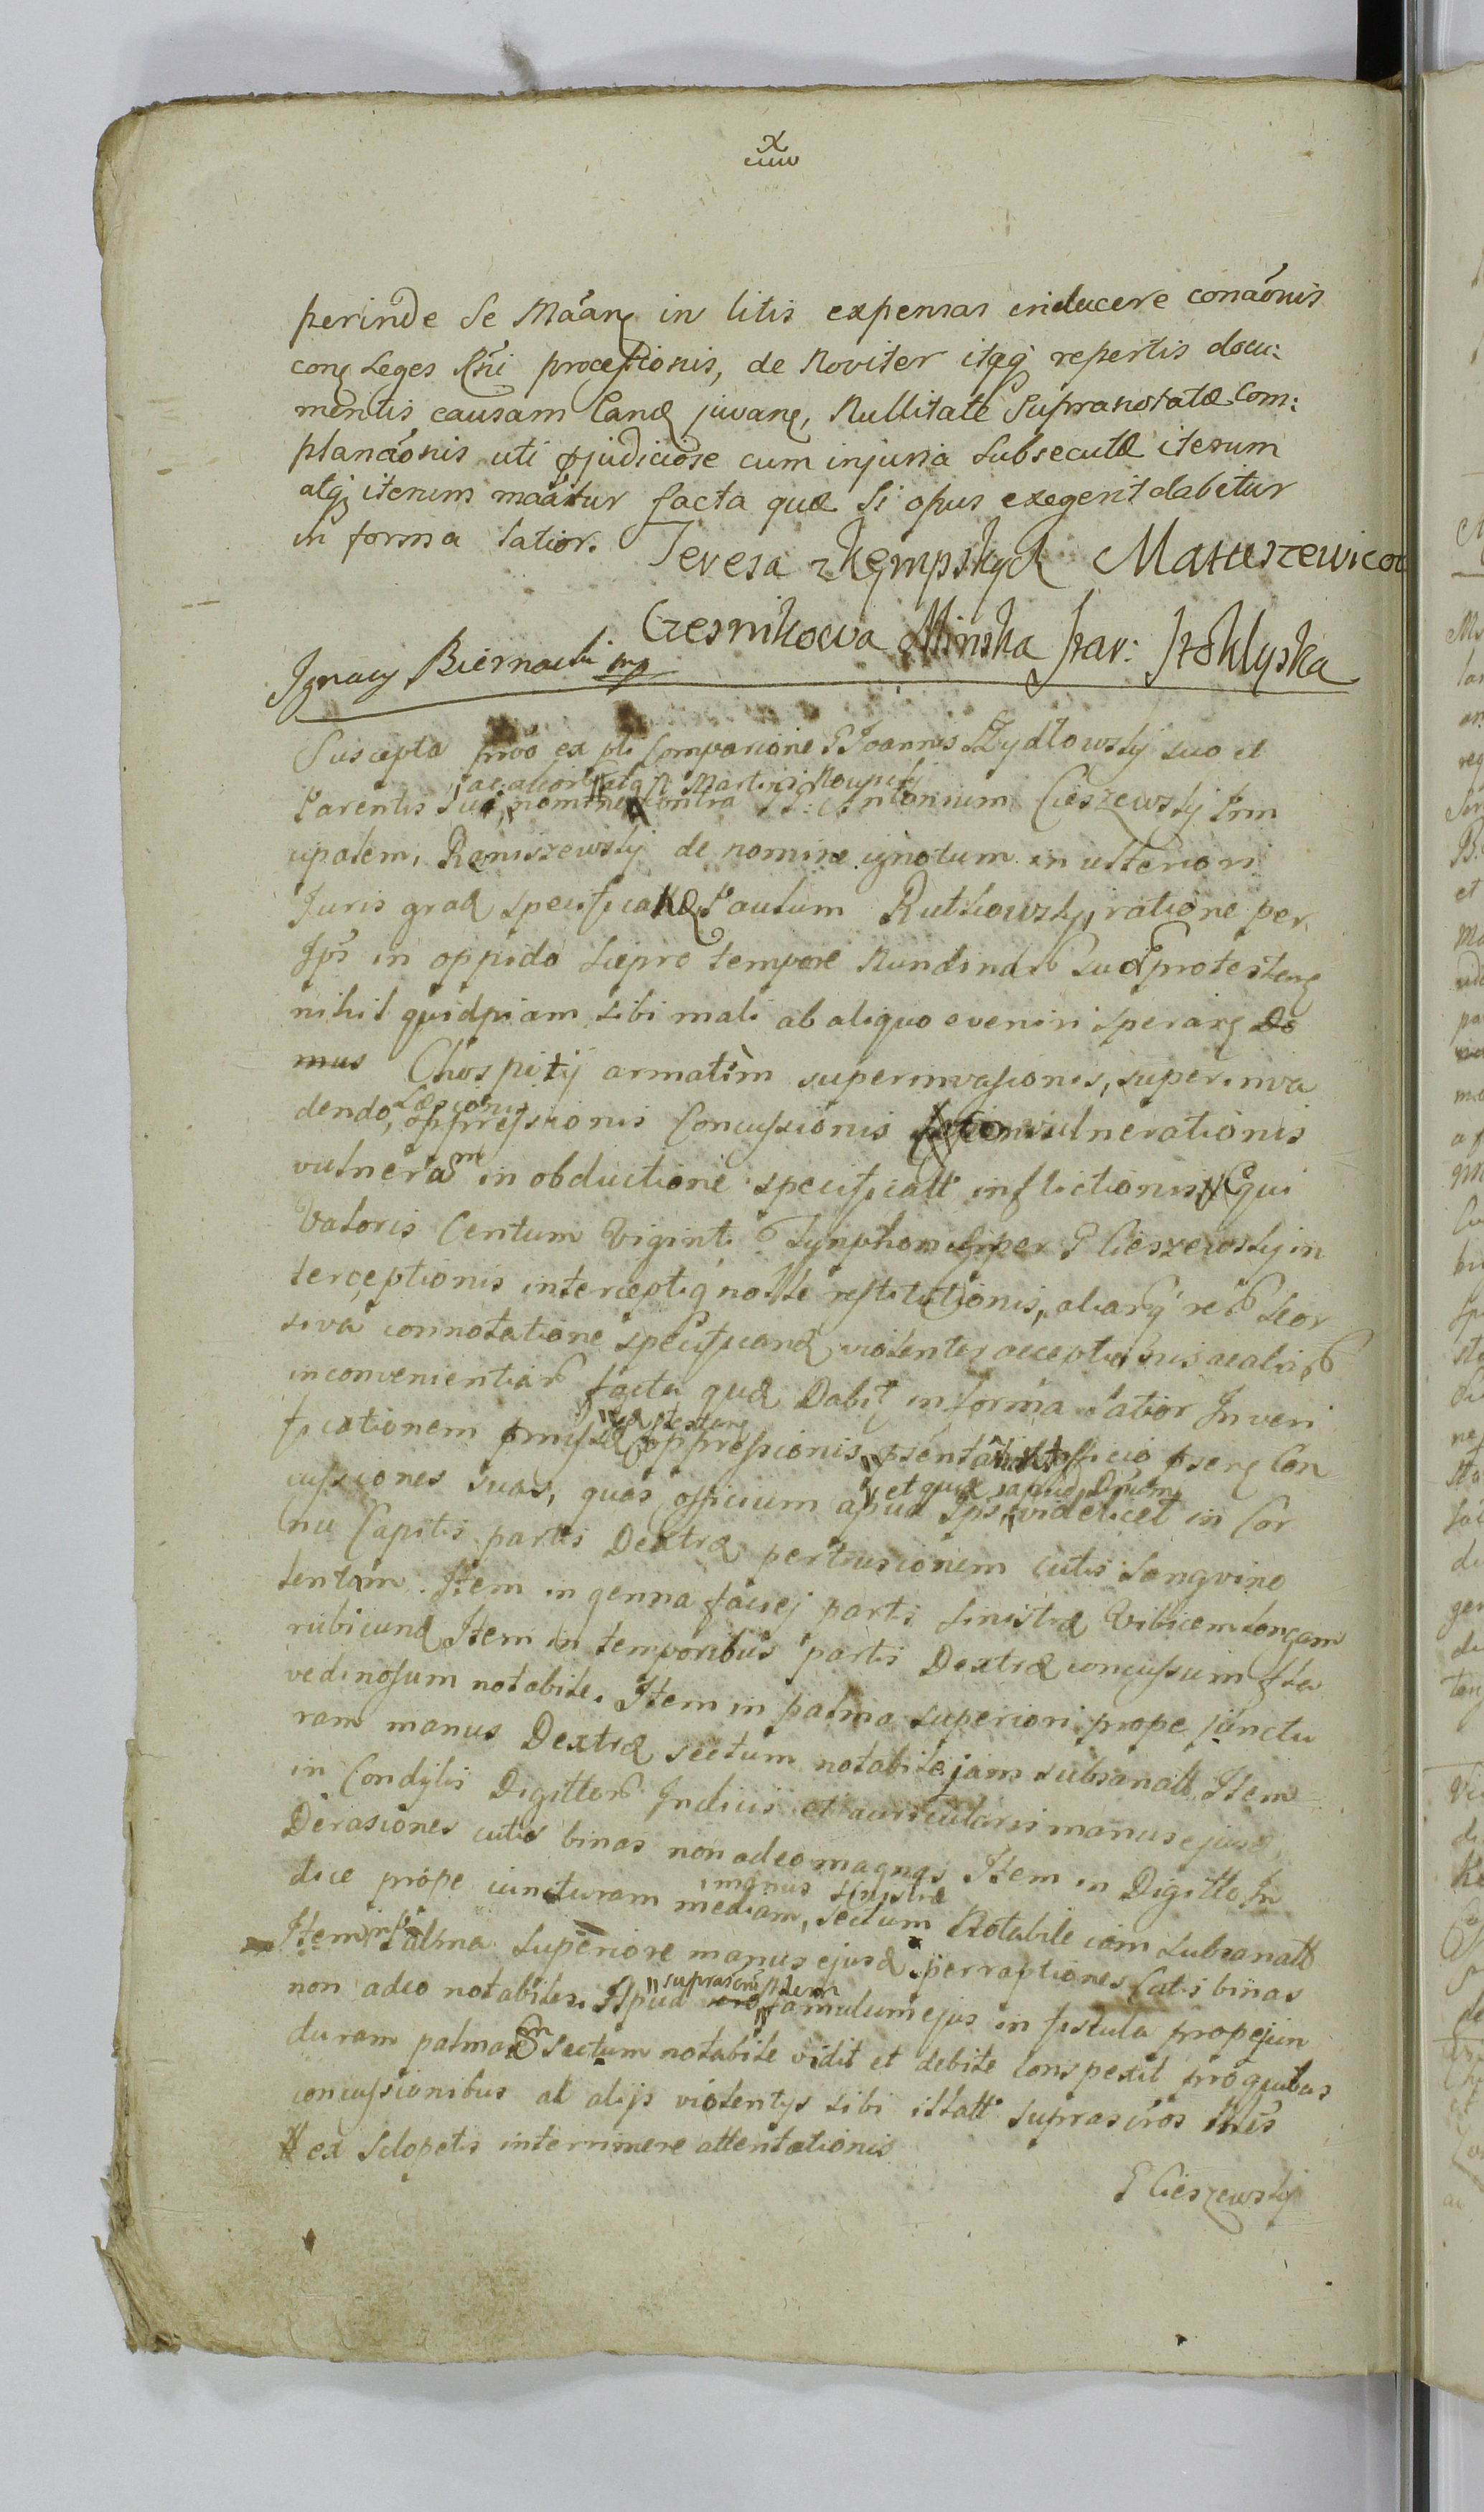 x
perinde se Máań in litis expensas inducere conáonis
con Leges Rńi processionis, de Noviter itaq repertis docu:
mentis causam Land juvan, Nullitate Supranotatæ Com:
planáonis uti pjudiciose cum injuria Subsecutæ iterum
atq iterum maátur facta quæ Si opus exegerit dabitur
in forma Latior. Teresa z Kęmpskych Matuszewicow
Czesnikowa Minska
Ignacy Biernacki mp
Suscepta prvo ex pte Comparicione P Joannis Szydłowskj suo et
ac alior atq N Martini
Parentis Sui nomine Contra P: Antonium Cieszewskj Prin
cipalem, Raniszewskj de nomine ignotum in ulteriori
Juris grad specificand Paulum Rutkowskj, ratione per
Ips in oppido Liepro tempore Nundinar sua protesten
nihil quidpiam sibi mali ab aliquo eveniri speran Do
mus Chospitij armatim superinvasionis, superinva
Læsionis
dendo, oppressionis Concussionis convulnerationis
vulnerum in obductione specificatt inflictionis, Equi
Valoris Centum Viginti Tynphon per P Cieszewskj in
terceptionis intercepti nolle restitutionis, aliarq rer Seor
siva connotatione specificand violenter acceptionis ac alior
inconvenientiar facta quæ Dabit in forma Latior In veri
ficationem pmissæ oppressionis, psentavit officio pserg Con
cussiones suas, quas officium apud Ips videlicet in Cor
nu Capitis partis Dextræ pertrusionem cutis Sangvine
tentam. Item in genna faciej partis Sinistræ Vibicem longam
rubicund Item in temporibus partis Dextræ concussum
notabile. Item in palma superiori prope junctu
ram manus Dextræ sectum notabile jam subsanatt Item
in Condylis Digittor Indicis et auricularis manus ejusd
Derasiones cutis binas non adeo magnas Item in Digitto In
manus sinistræ
dice prope iuncturam mediam, sectum Notabile iam subsanatt
Item in Palma Superiore manus ejusd perraptiones Cutis binas
non adeo notabiles. Apud famulum ejus in fistula prope jun
cturam palmar sectum notabile vidit et debite conspexit pro quibus
concussionibus at alijs violentys sibi illatt suprascros
ex Sclopetis interrimere attentationis
P Cieszewskj